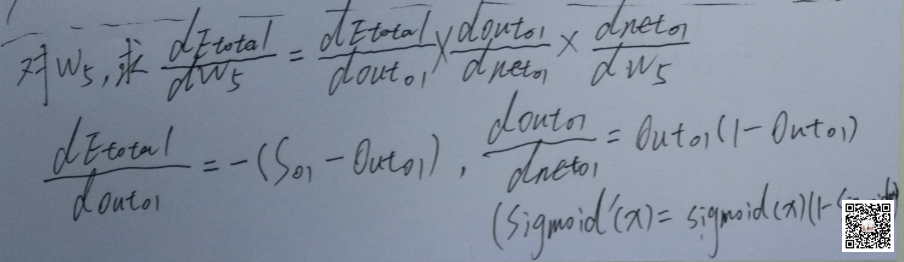 对W5,求 dEtotal/dW5 = dEtotal/dout01 × dout01/dnet01 × dnet01/dW5
dEtotal/dout01 = -(S01 - Out01), dout01/dnet01 = Out01(1-Out01)
(Sigmoid'(x) = sigmoid(x)(1-